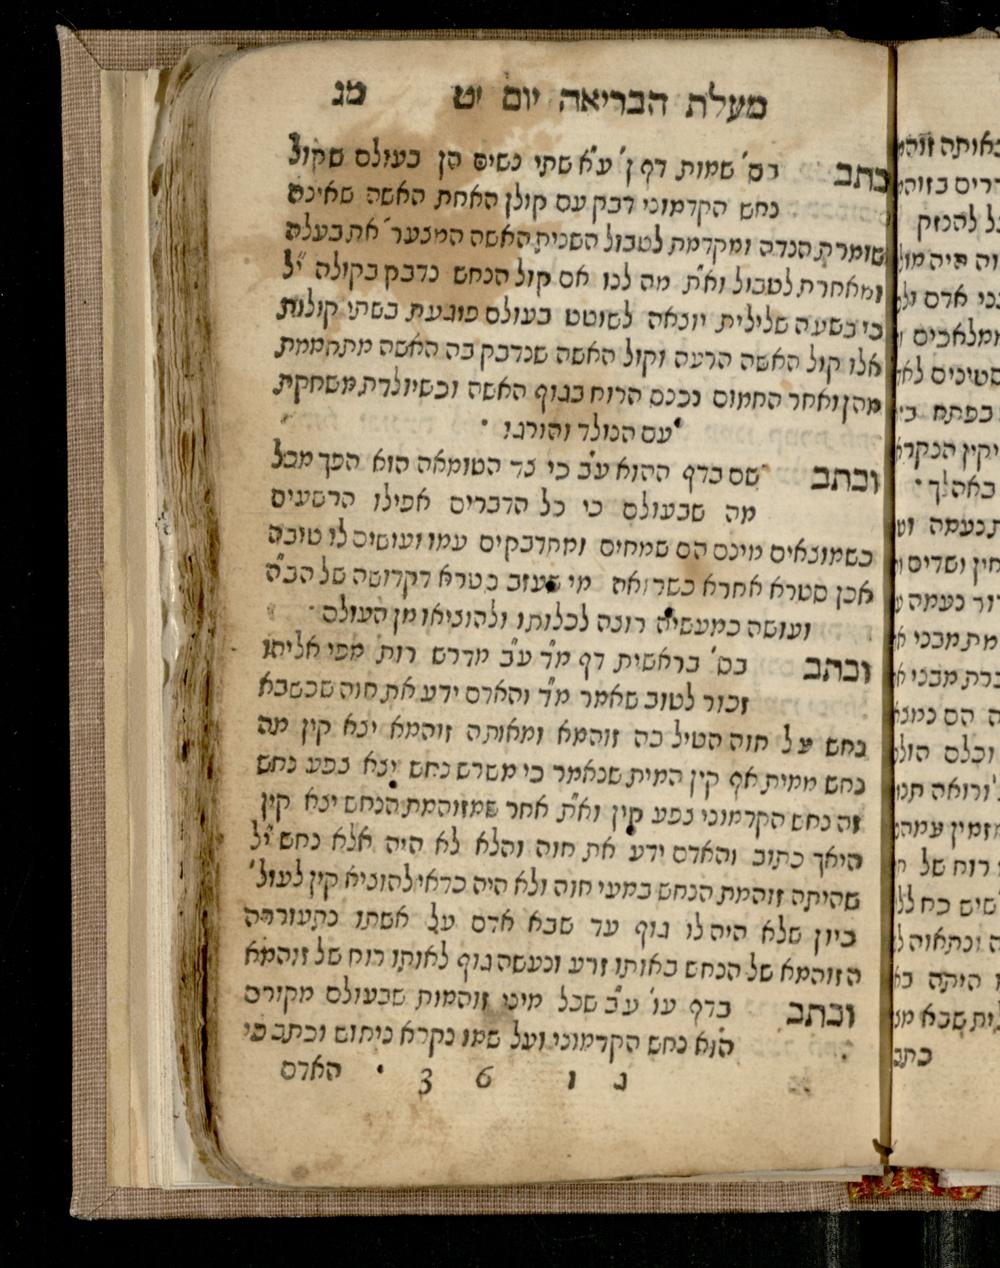 מעלת הבריאה יום יט מג
כתב בס' שמות דף ן' ע"א שתי נשים הן בעולם שקול
נחש הקדמוני דבק עם קולן האחת האשה שאינה
שומרת הנדה ומקדמת לטבול השנית האשה המצער' את בעלה
ומאחרת לטבול וא"ת מה לנו אם קול הנחש נדבק בקולה י"ל
כי בשעה שלילית יוצאה לשוטט בעולם פוגעת בשתי קולות
אלו קול האשה הרעה וקול האשה שנדבק בה האשה מתחממת
מהן ואחר החמום נכנס הרוח בגוף האשה וכשיולדת משחקת
עם הנולד והורגו
וכתב שם בדף ההוא ע"ב כי צד הטומאה הוא הפך מכל
מה שבעולם כי כל הדברים אפילו הרשעים
כשמוצאים מינם הם שמחים ומתדבקים עמו ועושים לו טובה
אכן סטרא אחרא כשרואה מי שעזב סטרא דקדושה של הב"ה
ועושה כמעשיה רוצה לכלותו ולהוציאו מן העולם
וכתב בס' בראשית דף מ"ד ע"ב מדרש רות מפי אליהו
זכור לטוב שאמר מ"ד והאדם ידע את חוה שכשבא
נחש על חוה הטיל בה זוהמא ומאותה זוהמא יצא קין מה
נחש ממית אף קין המית שנאמר כי משרש נחש יצא צפע נחש
זה נחש הקדמוני צפע קין וא"ת אחר שמזוהמת הנחש יצא קין
היאך כתוב והאדם ידע את חוה והלא לא היה אלא נחש י"ל
שהיתה זוהמת הנחש במעי חוה ולא היה כדאי להוציא קין לעול'
כיון שלא היה לו גוף עד שבא אדם על אשתו נתעוררה
הזוהמא של הנחש באותו זרע ונעשה גוף לאותו רוח של זוהמא
וכתב בדף עו' ע"ב שכל מיני זוהמות שבעולם מקורם
הוא נחש הקדמוני ועל שמו נקרא ניחוש וכתב פי
ג ו 6 3 האדם